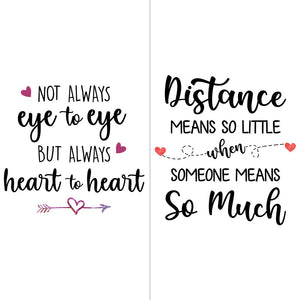 NOT ALWAYS
eye to eye
BUT ALWAYS
heart to heart
Distance
MEANS SO LITTLE
when
SOMEONE MEANS
So Much